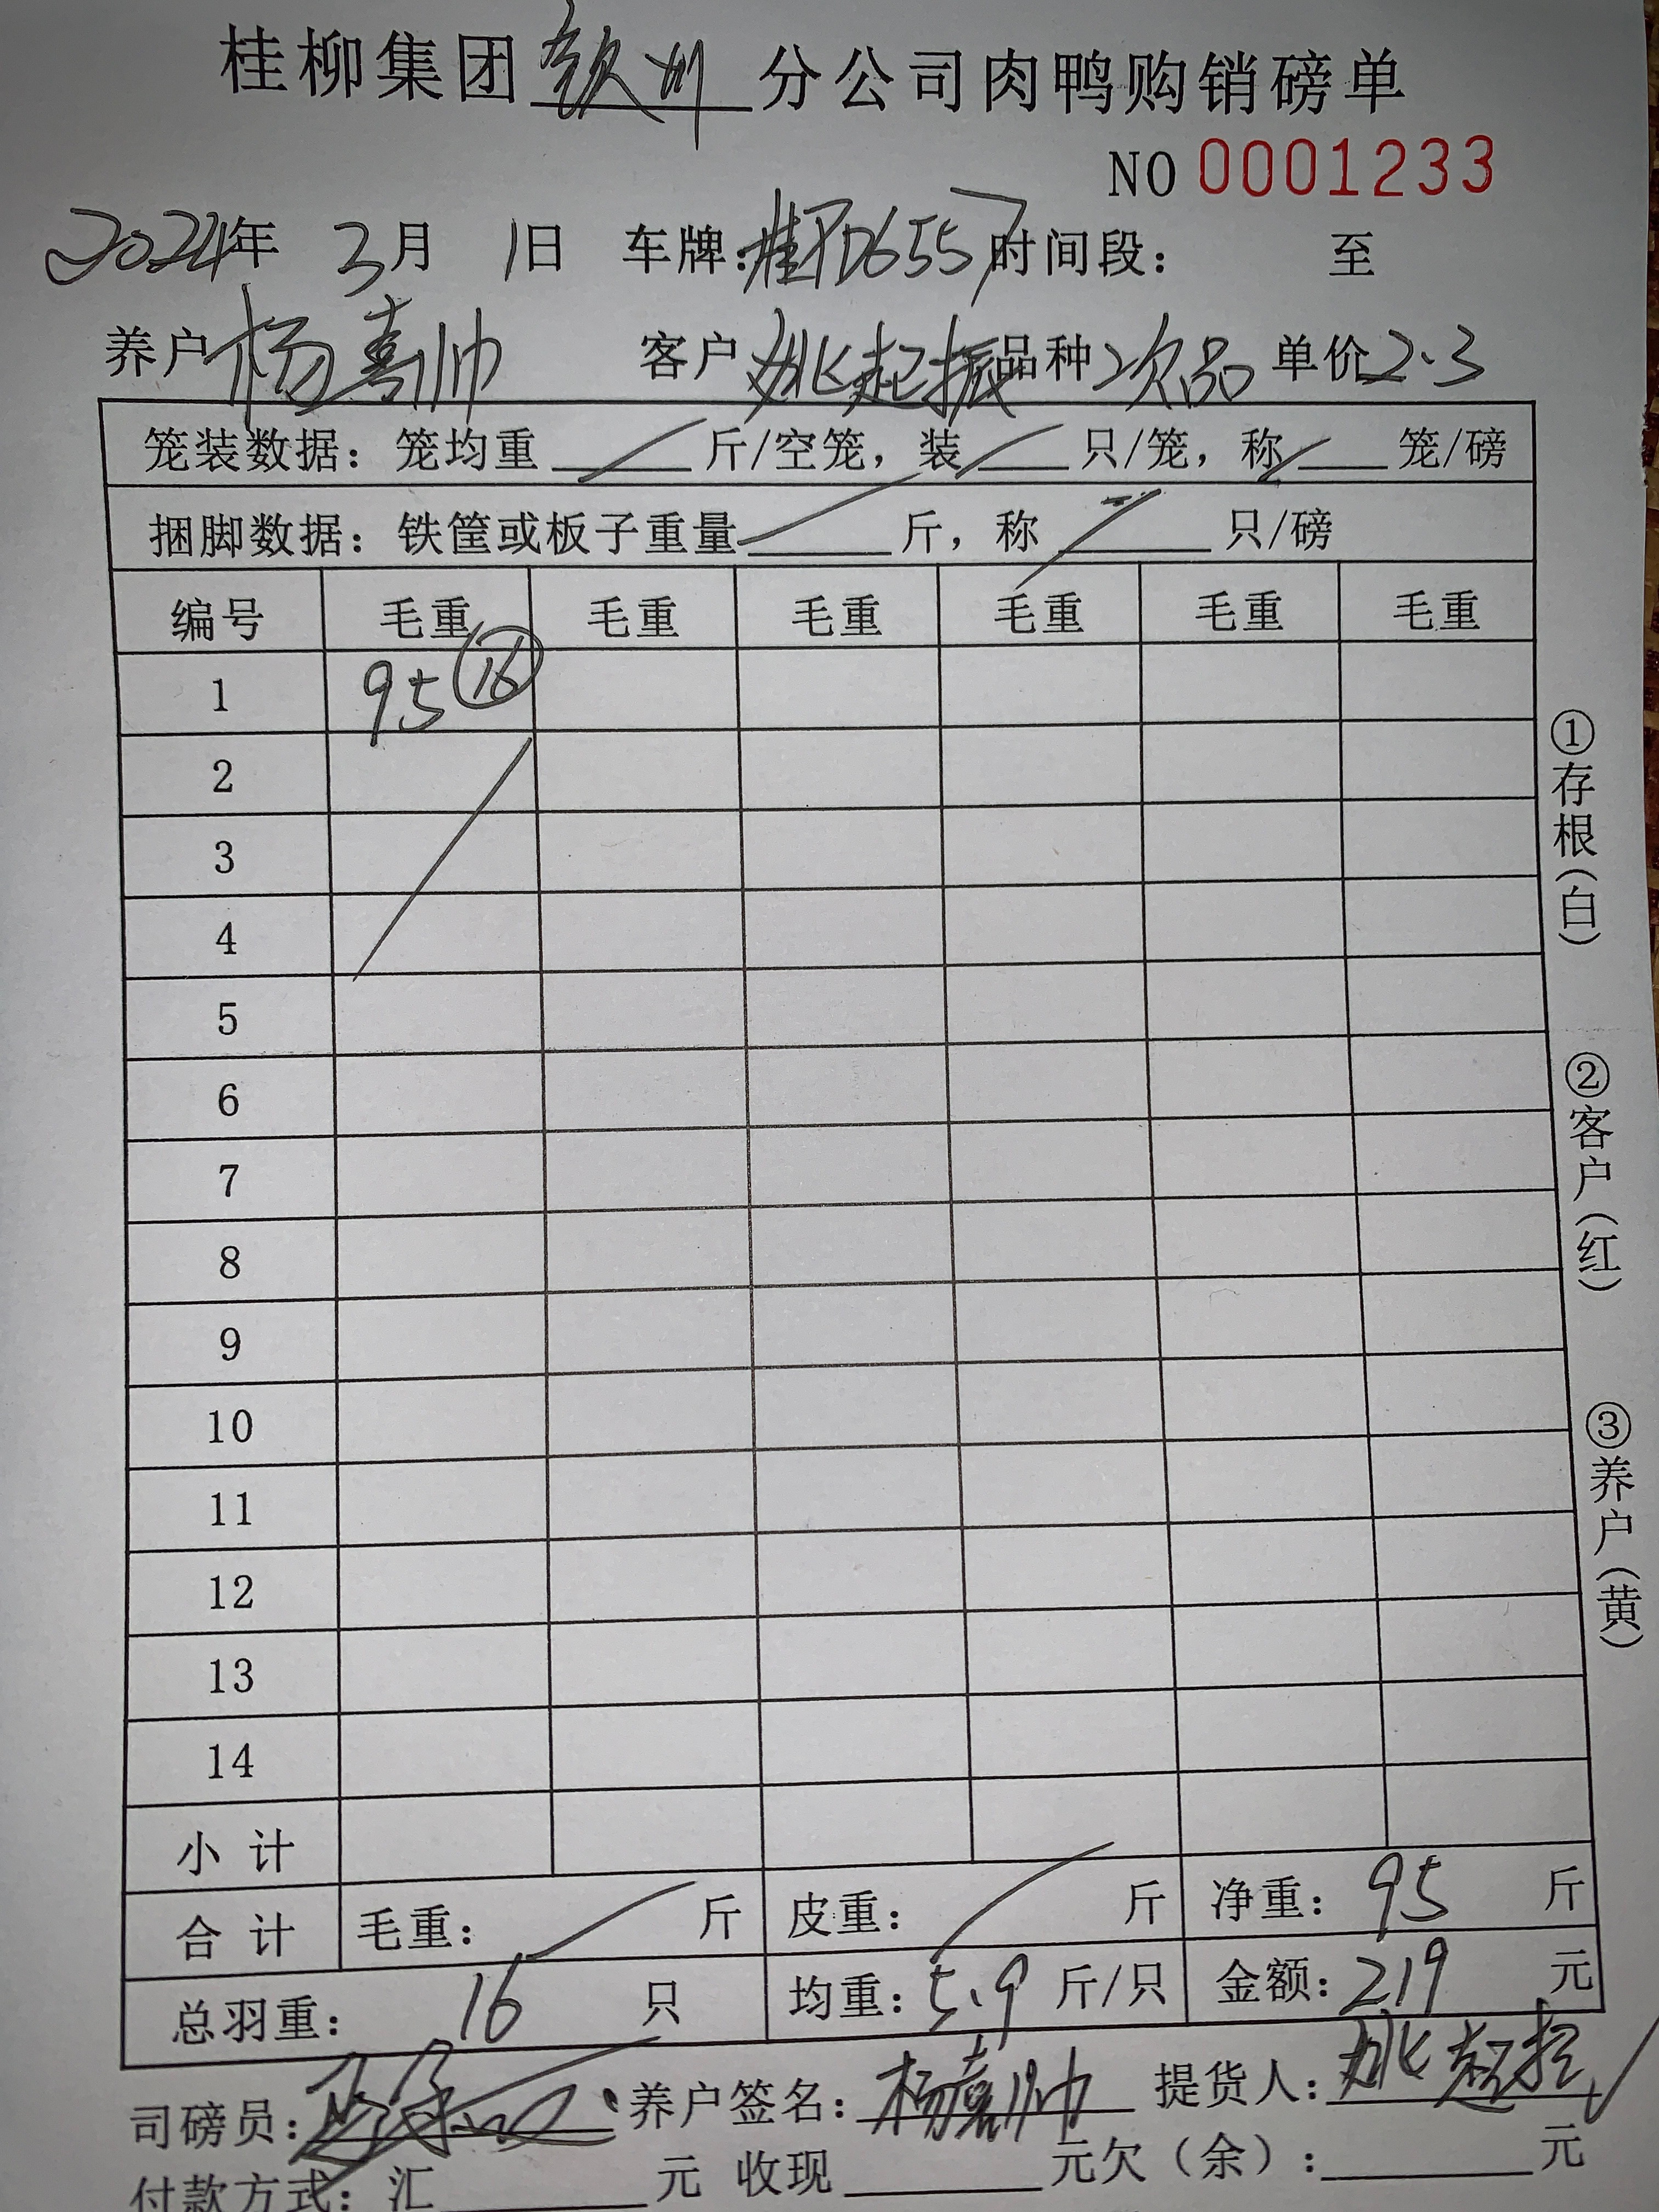 桂柳集团钦州分公司肉鸭购销磅单
NO 0001233
2024年 3月 1日 车牌:桂PD6557时间段: 至
养户杨喜帅 客户姚起振品种次品 单价2.3
笼装数据: 笼均重 / 斤/空笼, 装 / 只/笼, 称 / 笼/磅
捆脚数据: 铁筐或板子重量 / 斤, 称 / 只/磅
编号 毛重 毛重 毛重 毛重 毛重 毛重
1 95 (16)
2
3
4
5
6
7
8
9
10
11
12
13
14
小 计
合 计 毛重: / 斤 皮重: / 斤 净重: 95 斤
总羽重: 16 只 均重: 5.9 斤/只 金额: 219 元
司磅员: 养户签名: 杨喜帅 提货人: 姚起振
付款方式: 汇 元 收现 元欠(余): 元
①存根(白)
②客户(红)
③养户(黄)